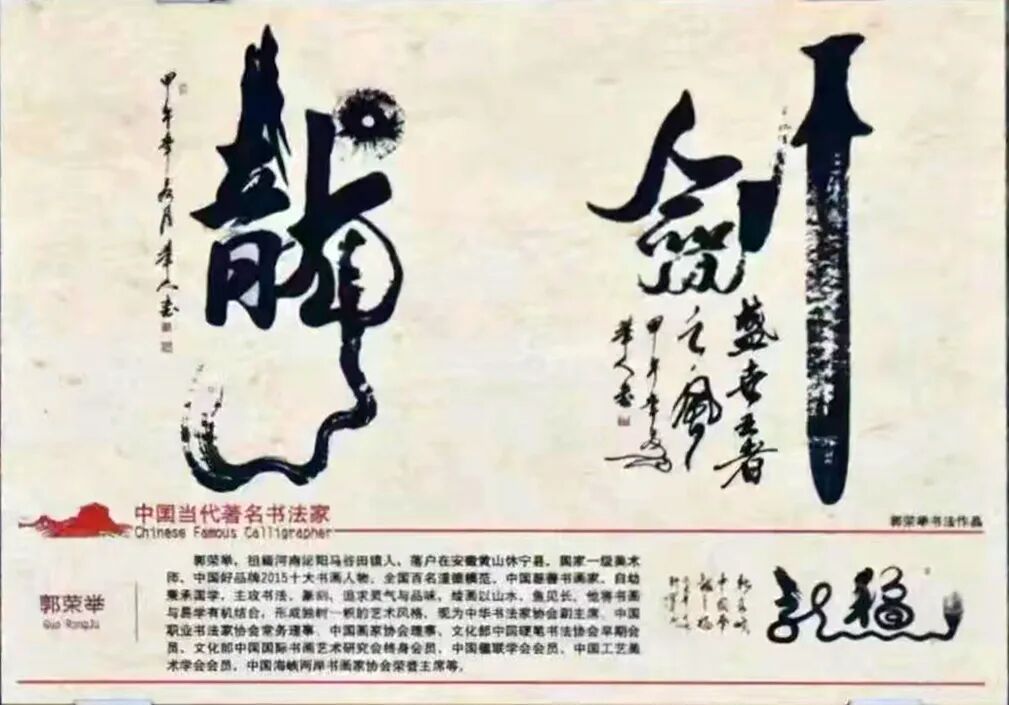 龍
甲午年
華人書
劍
盛世王者
之風
甲午年
華人書
中国当代著名书法家
Chinese Famous Calligrapher
郭荣举书法作品
郭荣举
Guo RongJu
郭荣举,祖籍河南泌阳马谷田镇人,落户在安徽黄山休宁县。国家一级美术
师、中国好品牌2015十大书画人物、全国百名道德模范、中国慈善书画家。自幼
秉承国学,主攻书法、篆刻,追求灵气与品味,绘画以山水、鱼见长,他将书画
与易学有机结合,形成独树一帜的艺术风格。现为中华书法家协会副主席、中国
职业书法家协会常务理事、中国画家协会理事、文化部中国硬笔书法协会早期会
员、文化部中国国际书画艺术研究会终身会员、中国楹联学会会员、中国工艺美
术学会会员、中国海峡两岸书画家协会荣誉主席等。
福